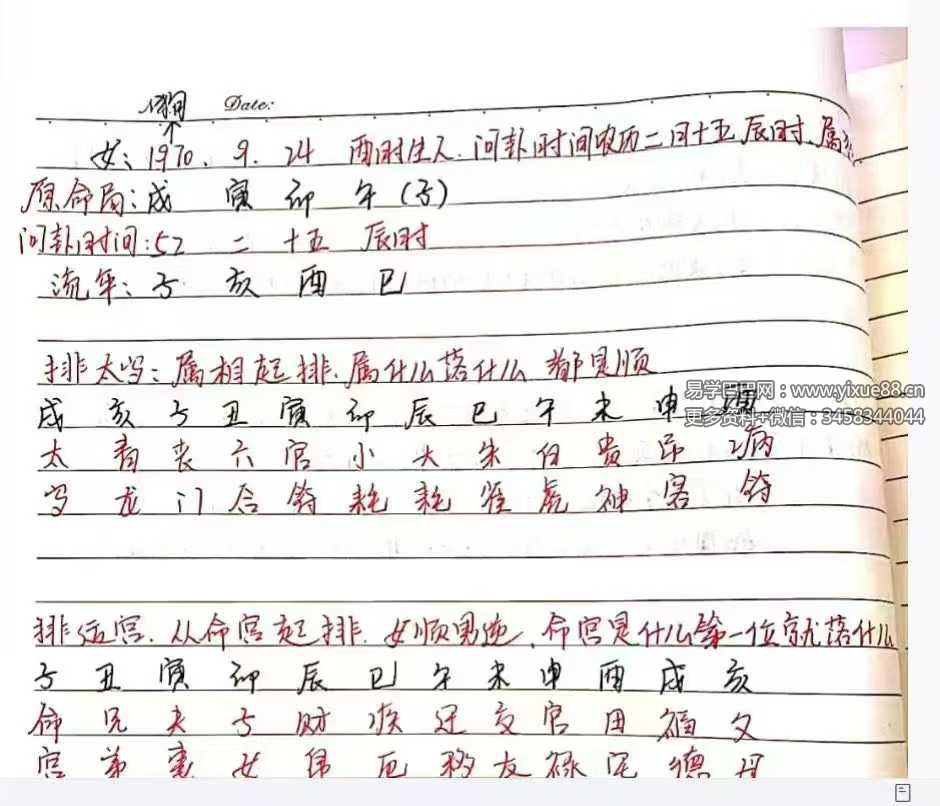 时间 Date:
女:1970.9.24 酉时生人.问卦时间农历二月十五辰时.属
原命局:戌 寅 卯 午(子)
问卦时间:52 二 十五 辰时
流年:子 亥 酉 巳
排太岁:属相起排.属什么落什么 都是顺
易学巴巴网:www.yixue88.cn
戌 亥 子 丑 寅 卯 辰 巳 午 未 申 酉
更多资料+微信:3458344044
太 青 丧 六 官 小 大 朱 白 贵 吊 病
岁 龙 门 合 符 耗 耗 雀 虎 神 客 符
排运宫.从命宫起排.女顺男逆.命宫是什么第一位就落什么
子 丑 寅 卯 辰 巳 午 未 申 酉 戌 亥
命 兄 夫 子 财 疾 迁 交 官 田 福 父
宫 弟 妻 女 帛 厄 移 友 禄 宅 德 母